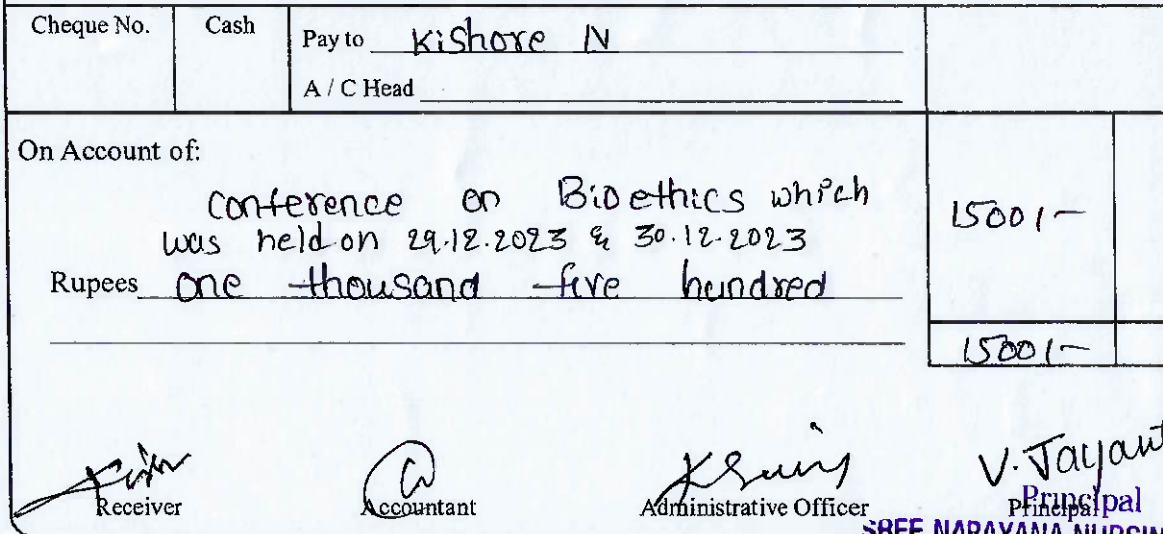 Cheque No. Cash Pay to Kishore N
A / C Head
On Account of:
conference on Bioethics which
was held on 29.12.2023 & 30.12.2023
1500/-
Rupees one thousand five hundred
1500/-
V. Jayant
Receiver Accountant Administrative Officer Principal
Principal
SREE NARAYANA NURSIN